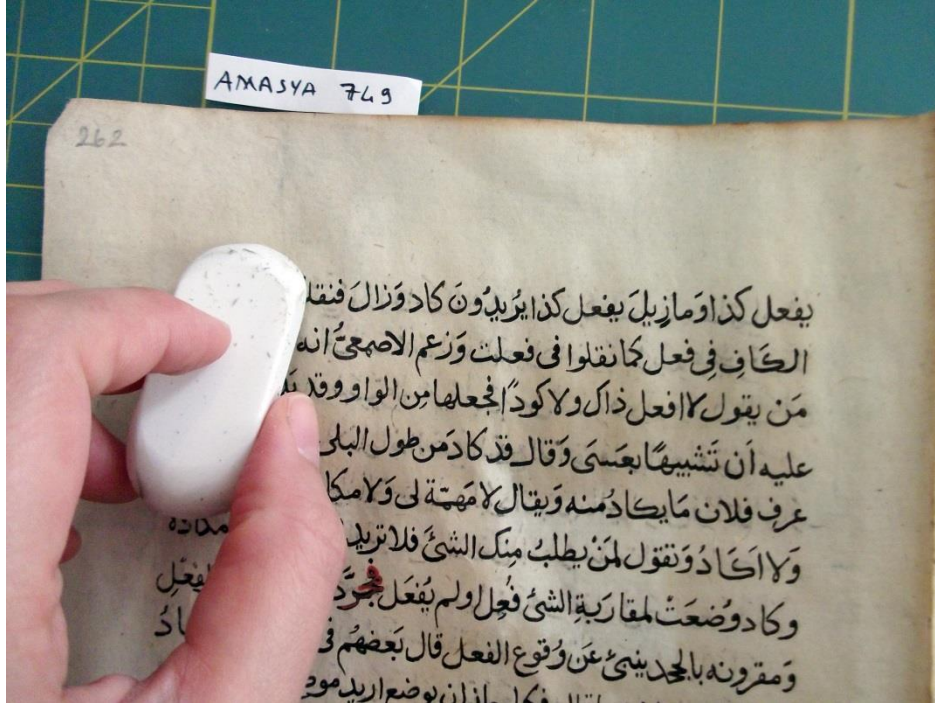 AMASYA 749
262
يفعل كذا وَمازِيلَ يفعل كذا يُرِيدُونَ كاد وَزالَ فنقلوا
الكَافِ فِى فعل كَما نقلوا فى فعلت وَزعم الاصمعىُّ انه
مَن يقول لاافعل ذاك ولا كودًا فجعلها مِن الواو وقد
عليه اَن تَشبيهًا بعَسَى وَقال قد كادَ من طول البلى
عرف فلان مَا يكادُ منه وَيقال لا مَهمّة لى وَلا مكا
وَلا اكَادُ وَتقول لمَنْ يطلبُ مِنك الشئَ فلا تريد
وكاد وُضعَتْ لمقاربةِ الشئ فُعِل اولم يُفعَل فمجرَّد لفِعْلِ
وَمقرونه بالجحد ينبئ عَن وُقوع الفعل قال بَعضهُم فى
ان يوضع اريد موضع